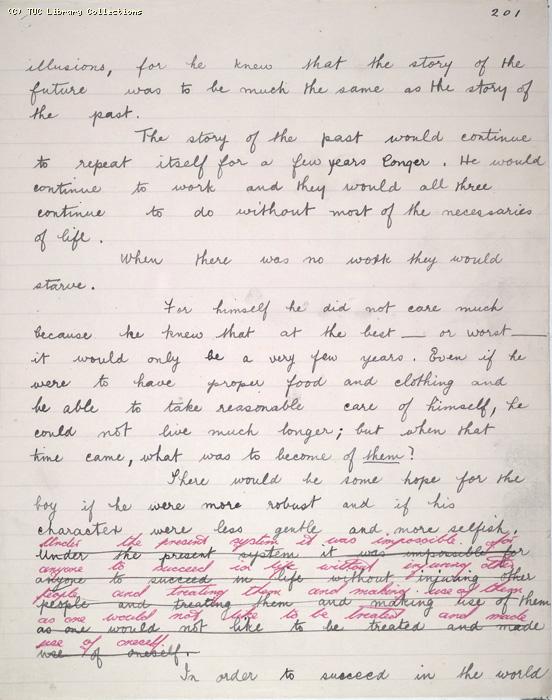 (C) TUC Library Collections
201
illusions, for he knew that the story of the
future was to be much the same as the story of
the past.
The story of the past would continue
to repeat itself for a few years longer. He would
continue to work and they would all three
continue to do without most of the necessaries
of life.
When there was no work they would
starve.
For himself he did not care much
because he knew that at the best — or worst —
it would only be a very few years. Even if he
were to have proper food and clothing and
be able to take reasonable care of himself, he
could not live much longer; but when that
time came, what was to become of them?
There would be some hope for the
boy if he were more robust and if his
character were less gentle and more selfish.
Under the present system it was impossible for
Under the present system it was impossible for
anyone to succeed in life without injuring other
anyone to succeed in life without injuring other
people and treating them and making use of them
people and treating them and making use of them
as one would not like to be treated and made
as one would not like to be treated and made
use of oneself.
use of oneself.
In order to succeed in the world